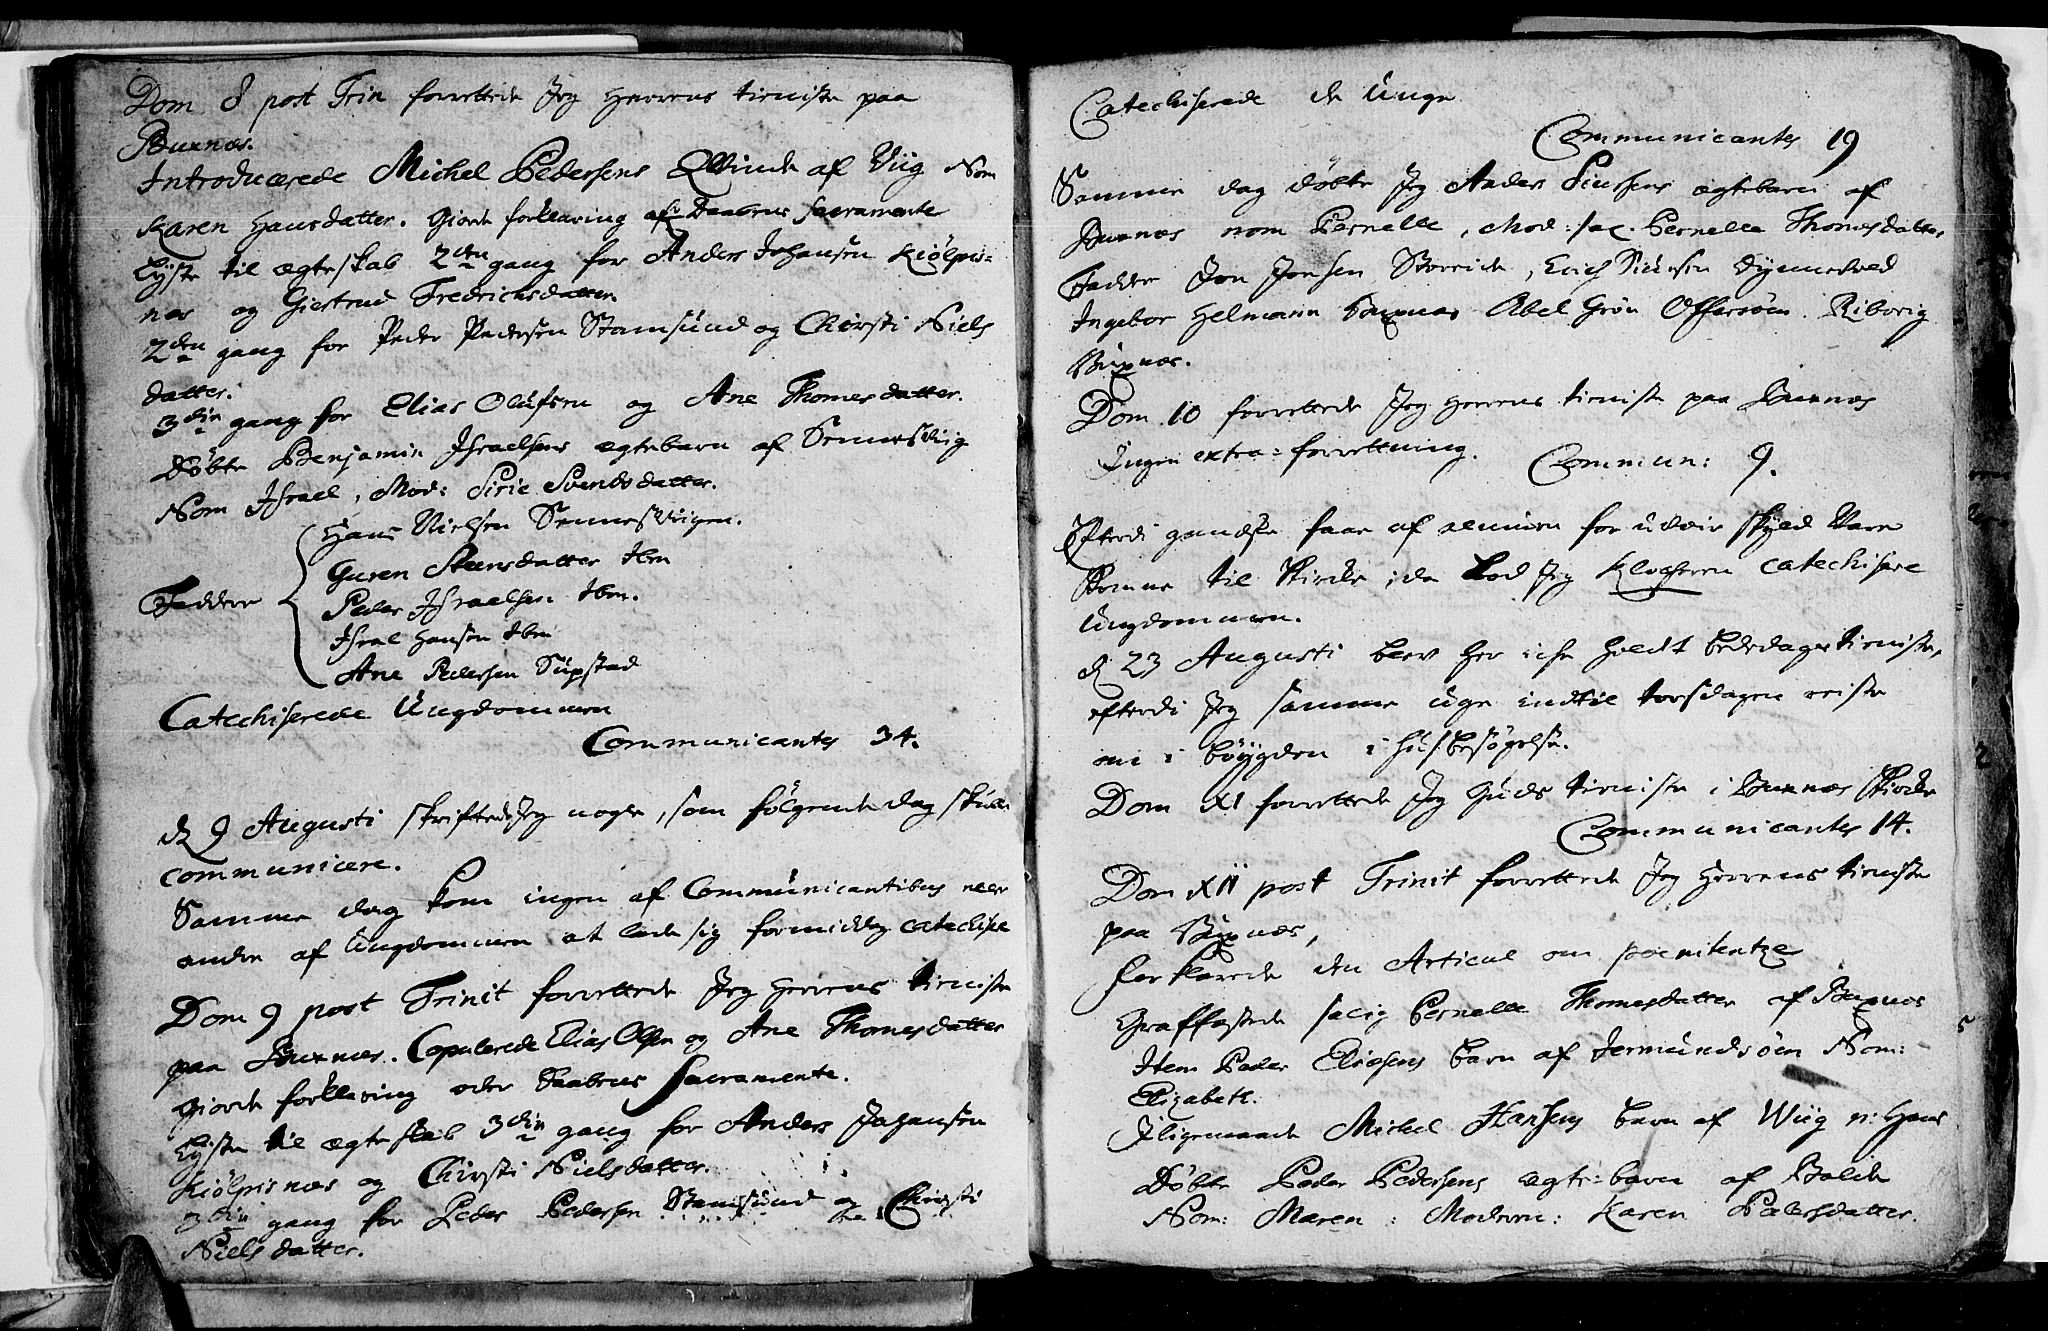 Dom 8 post Trin forrettede Jeg Herrens tieniste paa
Buxnæs.
Introducerede Michel Pedersens Qvinde af Viig Nom
Karen Hansdatter. Giorde forklaring af Daabens Sacramente
Lyste til ægteskab 2den gang for Anders Johansen Kiølpis=
næs og Giertrud Fredrichsdatter.
2den gang for Peder Pedersen Stamsund og Chirsti Niels
datter.
3die gang for Elias Olufsen og Ane Thomesdatter.
Døbte Benjamin Israelsens ægtebarn af Sennesviig
Nom Israel, Mod: Sirie Svendsdatter.
Hans Nielsen Sennesviigen.
Guren Steensdatter Ibm
Faddere Peder Israelsen Ibm.
Israel Hansen Ibm
Ane Pedersen Supstad
Catechiserede Ungdommen
Communicantes 34.
d 9 Augusti skriftede Jeg nogle, som følgende dag skulle
communicere.
Samme dag kom ingen af Communicantibus eller
andre af Ungdommen at lade sig formiddag catechise
Dom 9 post Trinit forrettede Jeg Herrens tieniste
paa Buxnæs. Copulerede Elias Olsen og Ane Thomesdatter
Giorde forklaring over Daabens Sacramente.
Lyste til ægteskab 3die gang for Anders Johansen
Kiølpisnæs og Chirsti Nielsdatter.
3die gang for Peder Pedersen Stamsund og Chirsti
Nielsdatter.
Catechiserede de Unge
Communicantes 19
Samme dag døbte Jeg Anders Siursens ægtebarn af
Buxnæs nom Pernelle, Mod: sal. Pernelle Thomesdatter
Faddere Jon Jonsen Storeide, Erich Siursen
Ingebor Helmann Buxnæs Abel Grøn Offersøen Riborig
Buxnæs.
Dom 10 forrettede Jeg Herrens tieniste paa Buxnæs
Ingen extra=forrettning. Commun: 9.
Efterdi gandske faae af almuen for skyld vare
komne til Kircke; da bad Jeg Klockeren catechisere
Ungdommen.
d 23 Augusti blev her icke holdt bededags tieniste,
efterdi Jeg samme uge indtil torsdagen reiste
om i bøygden i huusbesøgelse.
Dom XI forrettede Jeg Guds tieniste i Buxnæs Kircke
Communicantes 14.
Dom XII post Trinit forrettede Jeg Herrens tieniste
paa Buxnæs,
forklarede den Articul om poenitentze
Graffæstede salig Pernelle Thomesdatter af Buxnæs
Item Peder Eliesens barn af Jermundsøen Nom:
Elizabeth.
Iligemaade Michel Hansens barn af Wiig n: Hans
Døbte Peder Pedersens ægte=barn af Bolle
Nom: Maren: Moderen: Karen Pedersdatter.